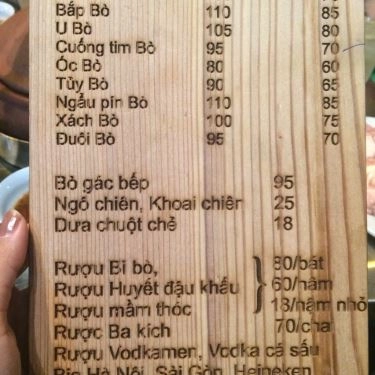 Bắp Bò 110 85
U Bò 105 80
Cuống tim Bò 95 70
Óc Bò 80 60
Tủy Bò 90 65
Ngẩu pín Bò 110 85
Xách Bò 100 75
Đuôi Bò 95 70
Bò gác bếp 95
Ngô chiên, Khoai chiên 25
Dưa chuột chẻ 18
Rượu Bì bò, 80/bát
Rượu Huyết đậu khấu 60/nậm
Rượu mầm thóc 18/nậm nhỏ
Rược Ba kích 70/chai
Rượu Vodkamen, Vodka cá sấu
Bia Hà Nội, Sài Gòn, Heineken